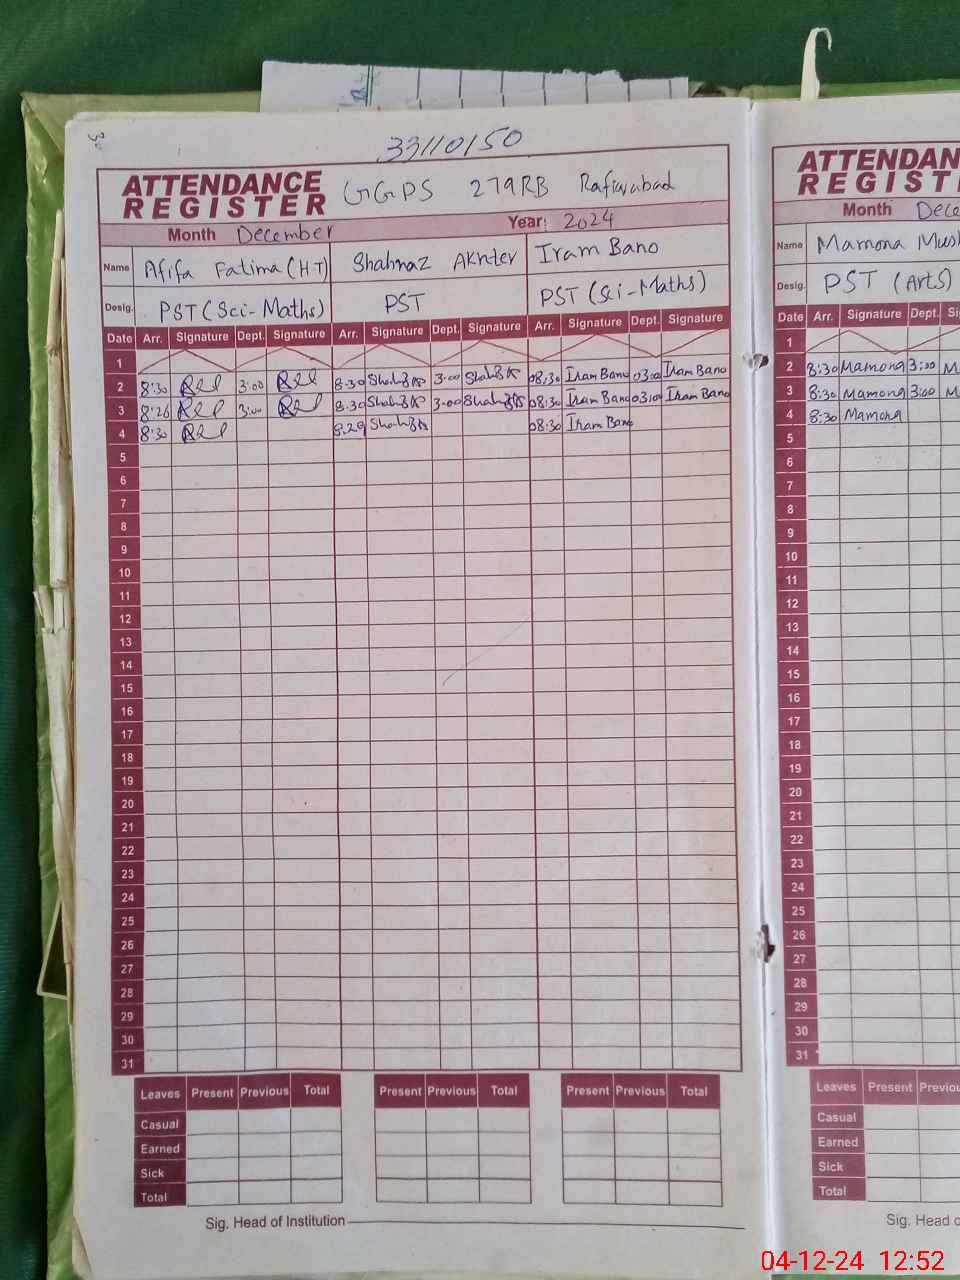 33110150
ATTENDANCE
REGISTER
GGPS 279RB Rafiqabad
Month December Year: 2024
Name Afifa Fatima (HT) Shahnaz Akhter Iram Bano
Desig. PST (Sci-Maths) PST PST (Sci-Maths)
Date Arr. Signature Dept. Signature Arr. Signature Dept. Signature Arr. Signature Dept. Signature
1
2 8:30 3:00 8:30 3:00 08:30 Iram Bano 03:00 Iram Bano
3 8:26 3:00 8:30 3:00 08:30 Iram Bano 03:00 Iram Bano
4 8:30 8:29 08:30 Iram Bano
5
6
7
8
9
10
11
12
13
14
15
16
17
18
19
20
21
22
23
24
25
26
27
28
29
30
31
Leaves Present Previous Total Present Previous Total Present Previous Total
Casual
Earned
Sick
Total
Sig. Head of Institution
ATTENDAN
REGIST
Month Dece
Name Mamona Mus
Desig. PST (Arts)
Date Arr. Signature Dept. Si
1
2 8:30 Mamona 3:00 M
3 8:30 Mamona 3:00 M
4 8:30 Mamona
5
6
7
8
9
10
11
12
13
14
15
16
17
18
19
20
21
22
23
24
25
26
27
28
29
30
31
Leaves Present Previou
Casual
Earned
Sick
Total
Sig. Head o
04-12-24 12:52